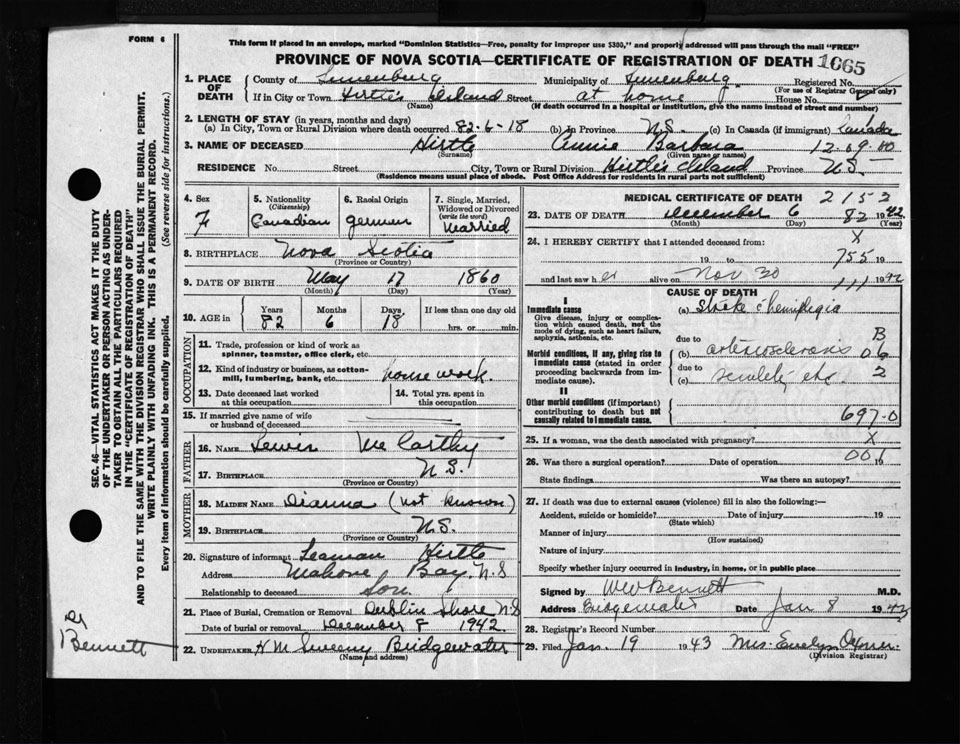 FORM 6
This form if placed in an envelope, marked "Dominion Statistics—Free, penalty for improper use $300," and properly addressed will pass through the mail "FREE"
PROVINCE OF NOVA SCOTIA—CERTIFICATE OF REGISTRATION OF DEATH 1065
1. PLACE OF DEATH County of Lunenburg Municipality of Lunenburg Registered No.
(For use of Registrar General only)
If in City or Town Hirtle's Island Street at home House No.
(Name) (If death occurred in a hospital or institution, give the name instead of street and number)
2. LENGTH OF STAY (in years, months and days)
(a) In City, Town or Rural Division where death occurred 82-6-18 (b) In Province N.S. (c) In Canada (if immigrant) Canada
3. NAME OF DECEASED Hirtle Annie Barbara 12-09-00
(Surname) (Given name or names)
RESIDENCE No. Street City, Town or Rural Division Hirtle's Island Province N.S.
(Residence means usual place of abode. Post Office Address for residents in rural parts not sufficient)
4. Sex F
5. Nationality (Citizenship) Canadian
6. Racial Origin German
7. Single, Married, Widowed or Divorced (write the word) Married
8. BIRTHPLACE Nova Scotia
(Province or Country)
9. DATE OF BIRTH May 17 1860
(Month) (Day) (Year)
10. AGE in Years Months Days If less than one day old
82 6 18 hrs. or min.
OCCUPATION
11. Trade, profession or kind of work as spinner, teamster, office clerk, etc.
12. Kind of industry or business, as cotton-mill, lumbering, bank, etc. house work.
13. Date deceased last worked at this occupation
14. Total yrs. spent in this occupation
15. If married give name of wife or husband of deceased
FATHER
16. NAME Lewis McCarthy
17. BIRTHPLACE N.S.
(Province or Country)
MOTHER
18. MAIDEN NAME Dianna (not known)
19. BIRTHPLACE N.S.
(Province or Country)
20. Signature of informant Leaman Hirtle
Address Mahone Bay, N.S
Relationship to deceased Son.
21. Place of Burial, Cremation or Removal Dublin Shore N.S
Date of burial or removal December 8 1942
22. UNDERTAKER H M Sweeny Bridgewater
(Name and address)
MEDICAL CERTIFICATE OF DEATH 2153
23. DATE OF DEATH December 6 82 1942
(Month) (Day) (Year)
24. I HEREBY CERTIFY that I attended deceased from: X
19 to 755 19
and last saw her alive on Nov 30 111 1942
CAUSE OF DEATH
I
Immediate cause
Give disease, injury or complication which caused death, not the mode of dying, such as heart failure, asphyxia, asthenia, etc.
(a) Stroke c̄ hemiplegia
due to B
Morbid conditions, if any, giving rise to immediate cause (stated in order proceeding backwards from immediate cause).
(b) arteriosclerosis 06
due to 2
(c) senility etc.
II
Other morbid conditions (if important) contributing to death but not causally related to immediate cause.
697-0
25. If a woman, was the death associated with pregnancy? X
26. Was there a surgical operation? Date of operation 001 19
State findings Was there an autopsy?
27. If death was due to external causes (violence) fill in also the following:—
Accident, suicide or homicide? Date of injury 19
(State which)
Manner of injury
(How sustained)
Nature of injury
Specify whether injury occurred in industry, in home, or in public place
Signed by W W Bennett M.D.
Address Bridgewater Date Jan 8 1943
28. Registrar's Record Number
29. Filed Jan. 19 1943 Mrs. Evelyn Oxner.
(Division Registrar)
SEC. 46—VITAL STATISTICS ACT MAKES IT THE DUTY
OF THE UNDERTAKER OR PERSON ACTING AS UNDERTAKER TO OBTAIN ALL THE PARTICULARS REQUIRED
IN THE "CERTIFICATE OF REGISTRATION OF DEATH"
AND TO FILE THE SAME WITH THE DIVISION REGISTRAR WHO SHALL ISSUE THE BURIAL PERMIT.
WRITE PLAINLY WITH UNFADING INK. THIS IS A PERMANENT RECORD.
Every item of information should be carefully supplied. (See reverse side for instructions.)
Dr
Bennett